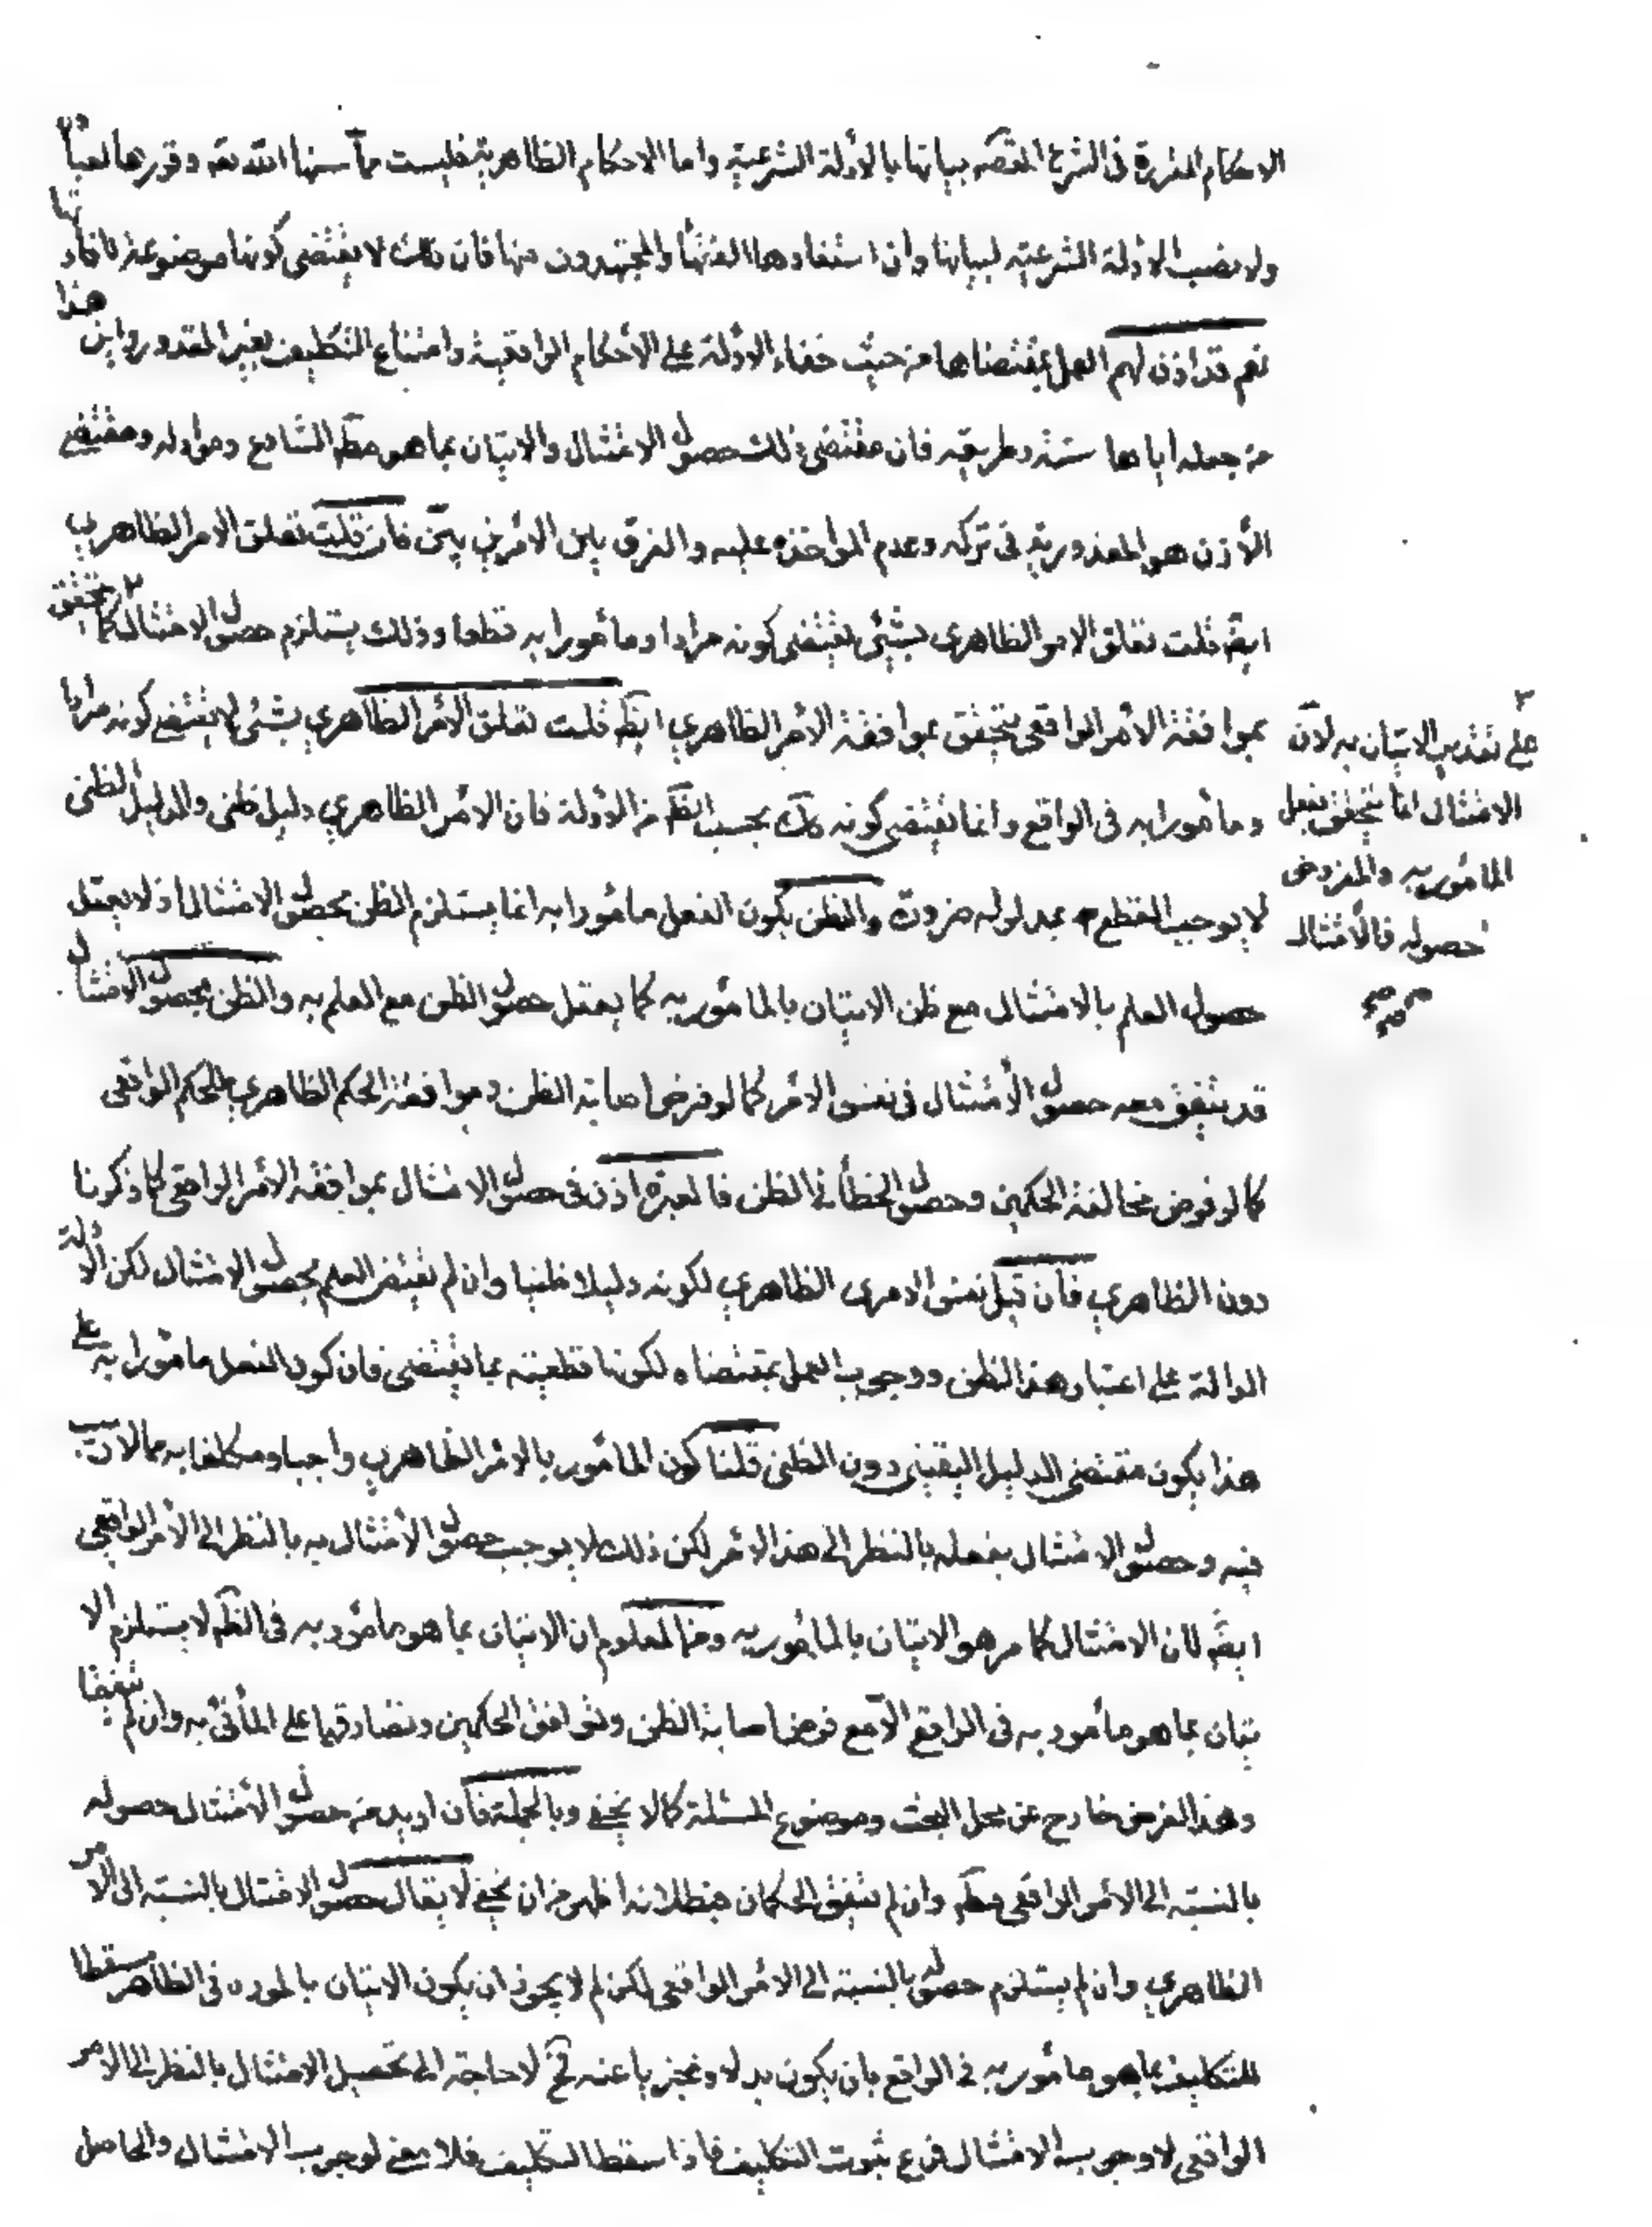 الاحكام المقررة فى الشرع المقصد بيانها بالادلة الشرعية واما الاحكام الظاهرية فليست مما سنها الله تعه وقررها لعباده
ولا نصب الادلة الشرعية لبيانها وان استفادها الفقهاء والمجتهدون منها فان ذلك لا يقتضى كونها موضوعة لافادتها
نعم قد اذن لهم العمل بمقتضاها من حيث خفاء الادلة على الاحكام الواقعية وامتناع التكليف بغير المقدور واين هذا
من جعله اياها سنة وطريقة فان مقتضى ذلك حصول الامتثال والاتيان بما هو مطم الشارع ومراده ومقتضى
الاذن هو المعذورية فى تركه وعدم المؤاخذة عليه والفرق بين الامرين بيّن فان قلت تعلق الامر الظاهري
ايضّ قلت تعلق الامر الظاهرى بشئ يقتضى كونه مرادا ومأمورا به قطعا وذلك يستلزم حصول الامتثال كما يتحقق
بموافقة الأمر الواقعى يتحقق بموافقة الأمر الظاهري ايضّ قلت تعلق الأمر الظاهري بشئ لا يقتضى كونه مرادا
ومأمورا به فى الواقع وانما يقتضى كونه كك بحسب الظم من الادلة فان الامر الظاهري دليل ظنى والدليل الظنى
لا يوجب القطع بمدلوله ضرورة والظن بكون الفعل مأمورا به انما يستلزم الظن بحصول الامتثال اذ لا يعقل
حصول العلم بالامتثال مع ظن الاتيان بالمأمور به كما يعقل حصول الظن مع العلم به والظن بحصول الامتثال
قد يتفق معه حصول الأمتثال فى نفس الامر كما لو فرض اصابة الظن وموافقة الحكم الظاهري للحكم الواقعى
كما لو فرض مخالفة الحكمين وحصول الخطأ فى الظن فالعبرة اذن فى حصول الامتثال بموافقة الأمر الواقعى كما ذكرنا
دون الظاهري فان قيل نفس الامرى الظاهري لكونه دليلا ظنيا وان لم يقتض العلم بحصول الامتثال لكن الادلة
الدالة على اعتبار هذا الظن ووجوب العمل بمقتضاه لكونها قطعية مما يقتضى فان كون الفعل مأمورا به على
هذا يكون مقتضى الدليل اليقينى دون الظنى قلنا كون المأمور بالامر الظاهري واجبا ومكلفا به مما لا ريب
فيه وحصول الامتثال بفعله بالنظر الى هذا الامر لكن ذلك لا يوجب حصول الأمتثال به بالنظر الى الأمر الواقعى
ايضّ لان الامتثال كما مر هو الاتيان بالمأمور به ومن المعلوم ان الاتيان بما هو مأمور به فى الظم لا يستلزم الا
تيان بما هو مأمور به فى الواقع الا مع فرض اصابة الظن وتوافق الحكمين وتصادقهما على المأتى به وان لم يتفقا
وهذا الفرض خارج عن محل البحث وموضوع المسئلة كما لا يخفى وبالجملة فان اريد من حصول الأمتثال حصوله
بالنسبة الى الأمر الواقعى مطم وان لم يتفق الحكمان فبطلانه اظهر من ان يخفى لا يقال حصول الامتثال بالنسبة الى الامر
الظاهري وان لم يستلزم حصوله بالنسبة الى الامر الواقعى لكن لم لا يجوز ان يكون الاتيان بالمور به فى الظاهر مسقطا
للتكليف بما هو مأمور به فى الواقع بان يكون بدلا ومجزيا عنه فح لا حاجة الى تحصيل الامتثال بالنظر الى الامر
الواقعى لا وجوب الامتثال فرع ثبوت التكليف فاذا سقط التكليف فلا معنى لوجوب الامتثال والحاصل
٣
على تقدير الاتيان به لان
الامتثال انما يتحقق بفعل
المأمور به والمفروض
حصوله فالأمتثال